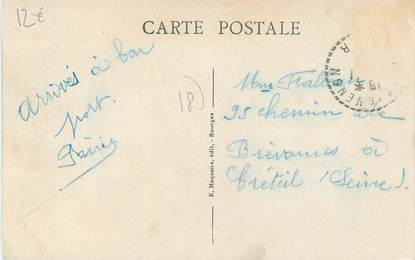 12€
CARTE POSTALE
Arrivés à bon
port.
18)
E. Maquaire, édit. - Bourges
Mme
95 chemin de
Brévannes à
Créteil (Seine).